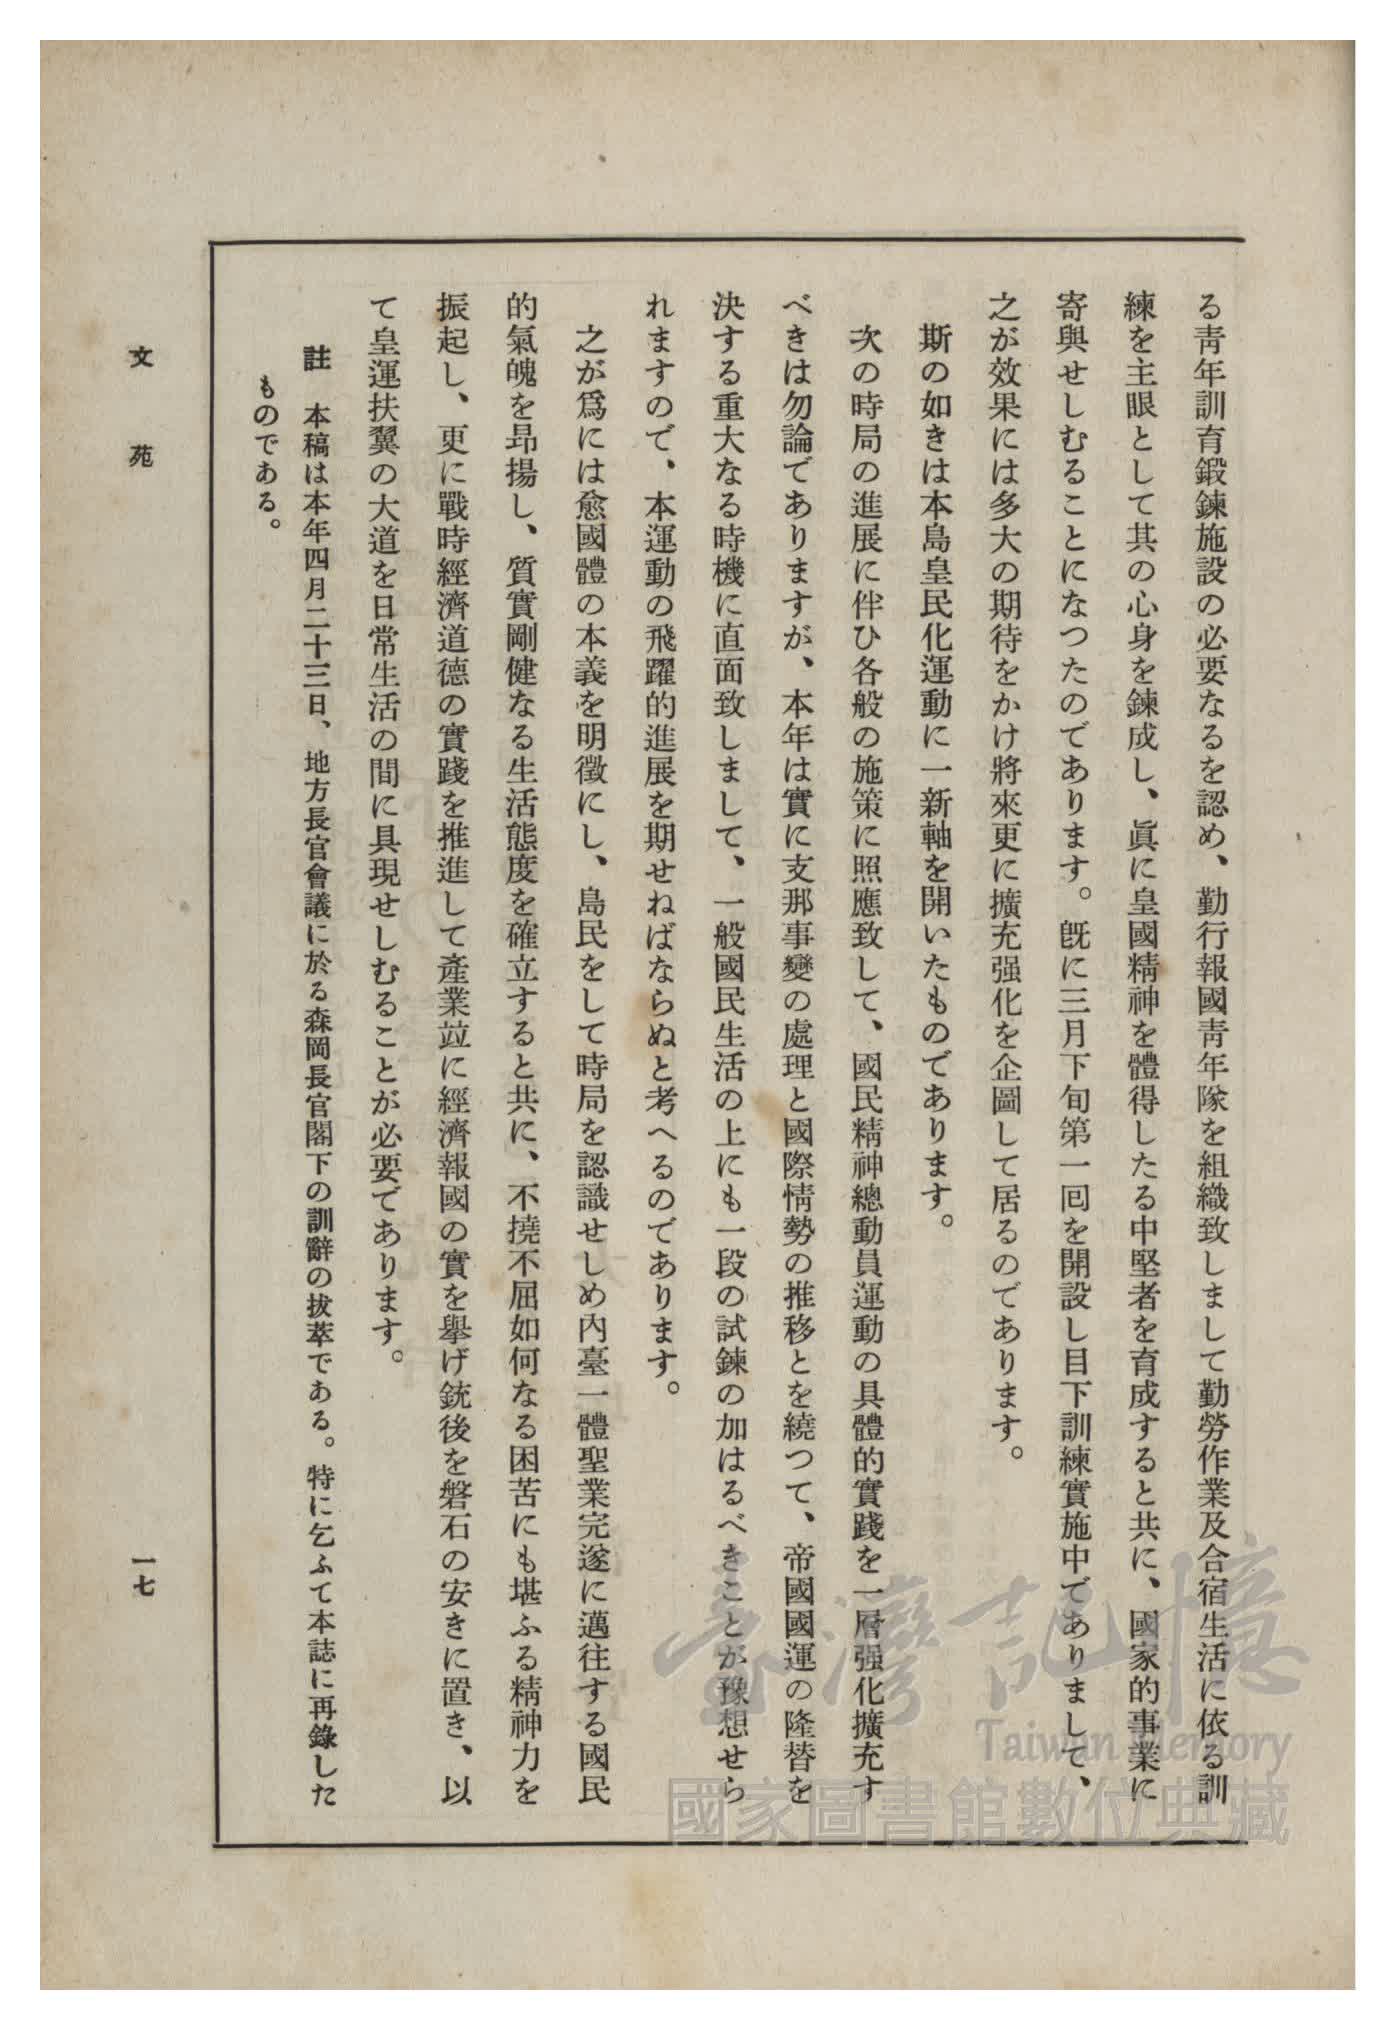 る靑年訓育鍛鍊施設の必要なるを認め、勤行報國靑年隊を組織致しまして勤勞作業及合宿生活に依る訓
練を主眼として其の心身を鍊成し、眞に皇國精神を體得したる中堅者を育成すると共に、國家的事業に
寄與せしむることになつたのであります。既に三月下旬第一囘を開設し目下訓練實施中でありまして、
之が效果には多大の期待をかけ將來更に擴充强化を企圖して居るのであります。
斯の如きは本島皇民化運動に一新軸を開いたものであります。
次の時局の進展に伴ひ各般の施策に照應致して、國民精神總動員運動の具體的實踐を一層强化擴充す
べきは勿論でありますが、本年は實に支那事變の處理と國際情勢の推移とを繞つて、帝國國運の隆替を
決する重大なる時機に直面致しまして、一般國民生活の上にも一段の試鍊の加はるべきことが豫想せら
れますので、本運動の飛躍的進展を期せねばならぬと考へるのであります。
之が爲には愈國體の本義を明徵にし、島民をして時局を認識せしめ內臺一體聖業完遂に邁往する國民
的氣魄を昂揚し、質實剛健なる生活態度を確立すると共に、不撓不屈如何なる困苦にも堪ふる精神力を
振起し、更に戰時經濟道德の實踐を推進して產業竝に經濟報國の實を擧げ銃後を磐石の安きに置き、以
て皇運扶翼の大道を日常生活の間に具現せしむることが必要であります。
註　本稿は本年四月二十三日、地方長官會議に於る森岡長官閣下の訓辭の拔萃である。特に乞ふて本誌に再錄した
ものである。
文苑
一七
臺灣記憶
Taiwan Memory
國家圖書館數位典藏